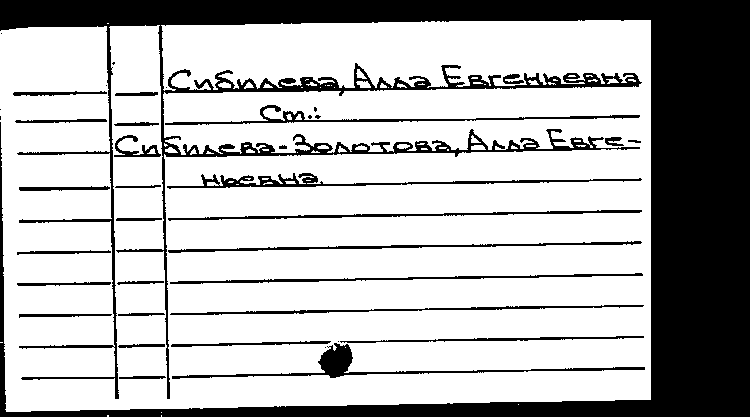 Сибилева, Алла Евгеньевна
Ст.:
Сибилева-Золотова, Алла Евге-
ньевна.